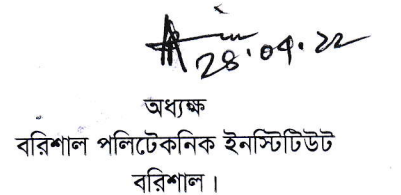 28.04.22
অধ্যক্ষ
বরিশাল পলিটেকনিক ইনস্টিটিউট
বরিশাল।